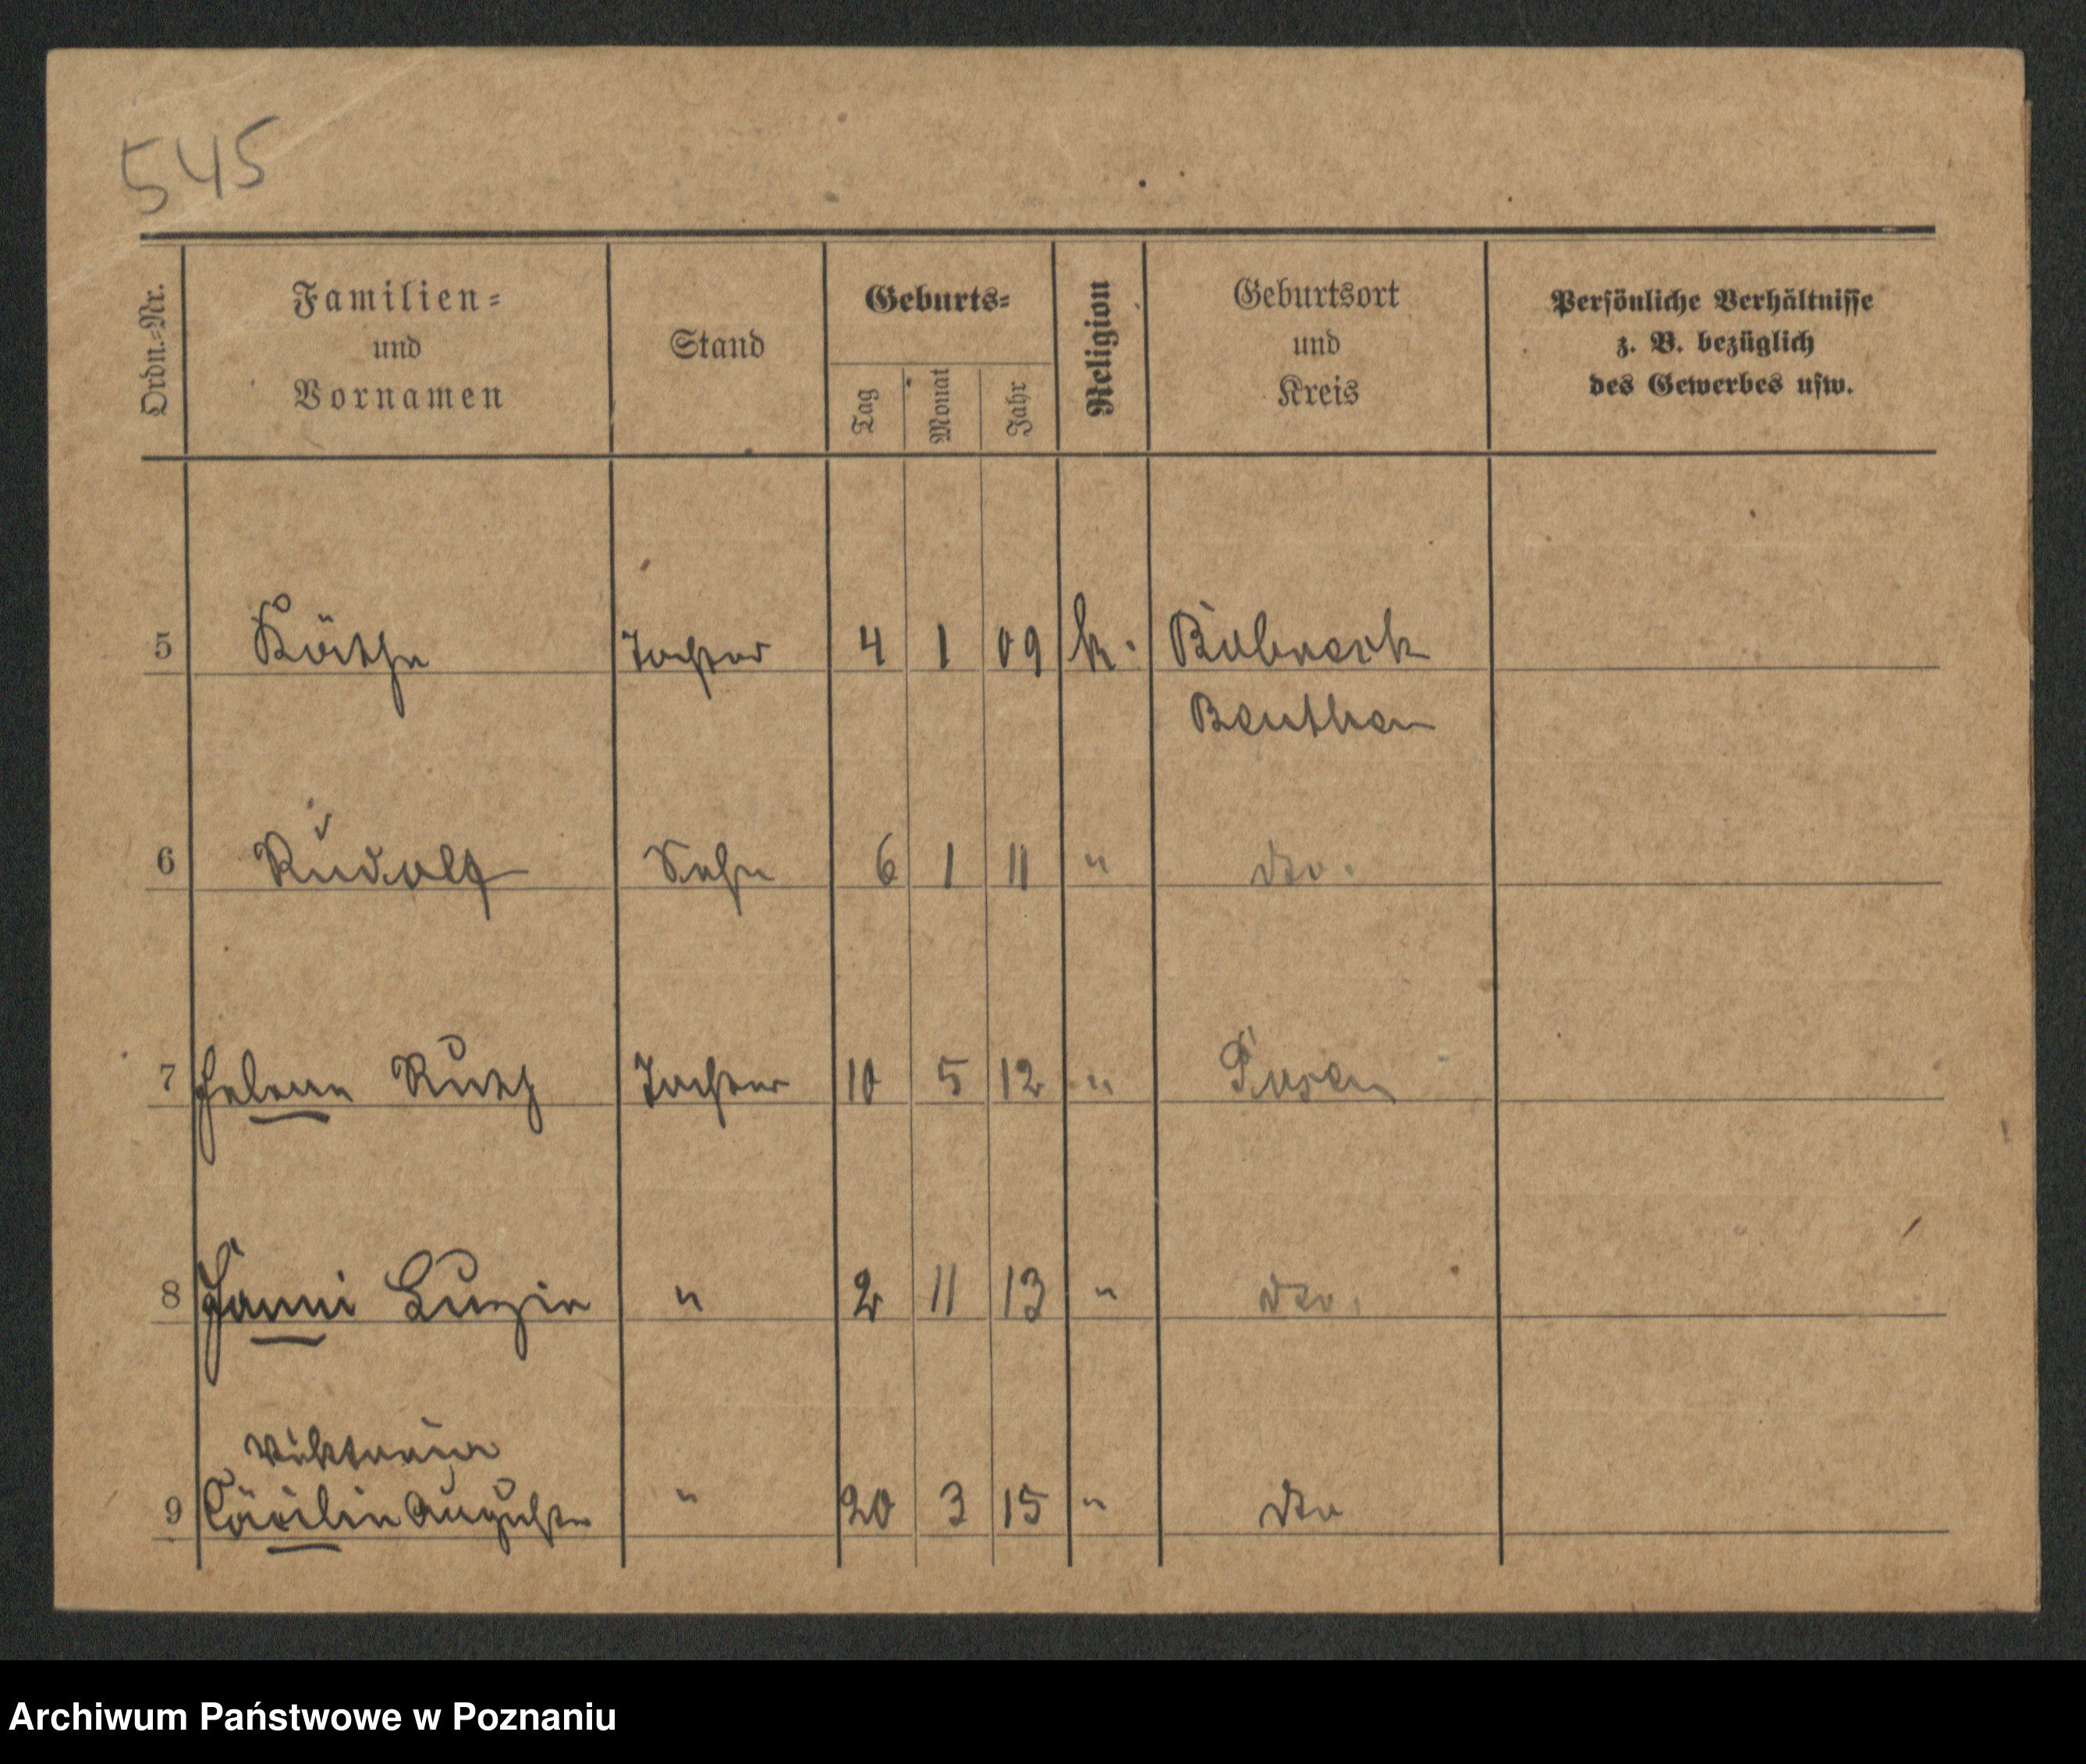 545
Ordn.-Nr.
Familien-
und
Vornamen
Stand
Geburts-
Tag
Monat
Jahr
Religion
Geburtsort
und
Kreis
Persönliche Verhältnisse
z. B. bezüglich
des Gewerbes usw.
5 Käthe Tochter 4 1 09 k. Bobreck
Beuthen
6 Rudolf Sohn 6 1 11 " dto.
7 Helene Ruth Tochter 10 5 12 " Posen
8 Fanni Luzie " 2 11 13 " dto.
Viktoria
9 Cäcilie Auguste " 20 3 15 " dto
Archiwum Państwowe w Poznaniu